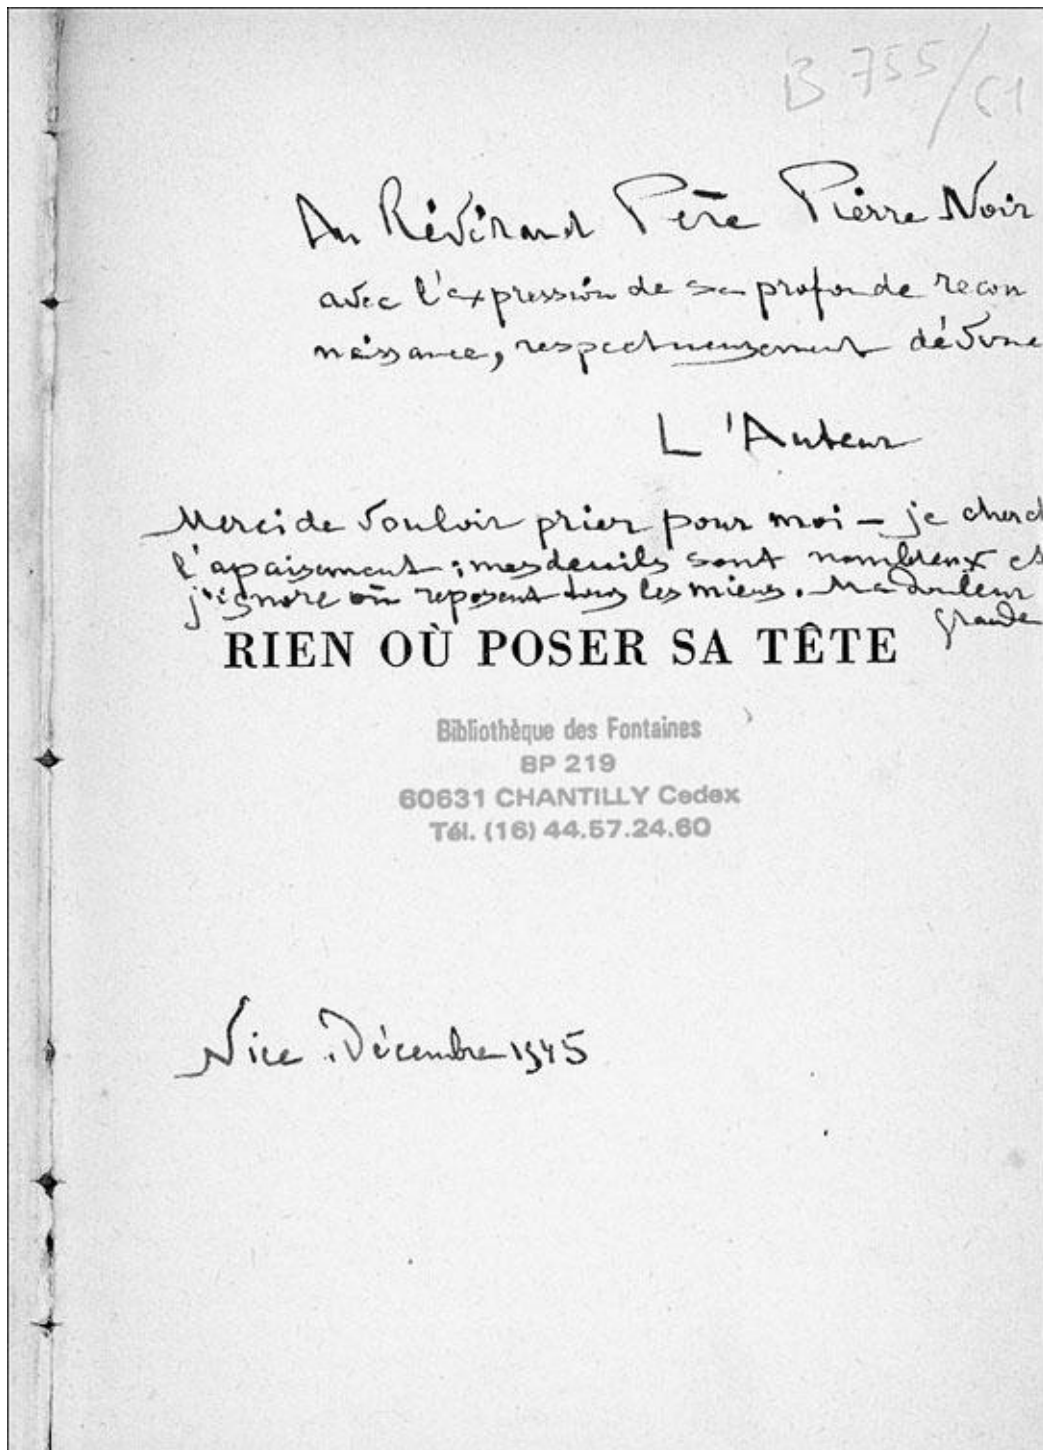 B 755/61
Au Révérend Père Pierre Noir
avec l'expression de sa profonde recon
naissance, respectueusement dévouée
L'Auteur
Merci de vouloir prier pour moi – je cherch
l'apaisement ; mes deuils sont nombreux et
j'ignore où reposent tous les miens. Ma douleur
grande
RIEN OÙ POSER SA TÊTE
Bibliothèque des Fontaines
BP 219
60631 CHANTILLY Cedex
Tél. (16) 44.57.24.60
Nice. Décembre 1945